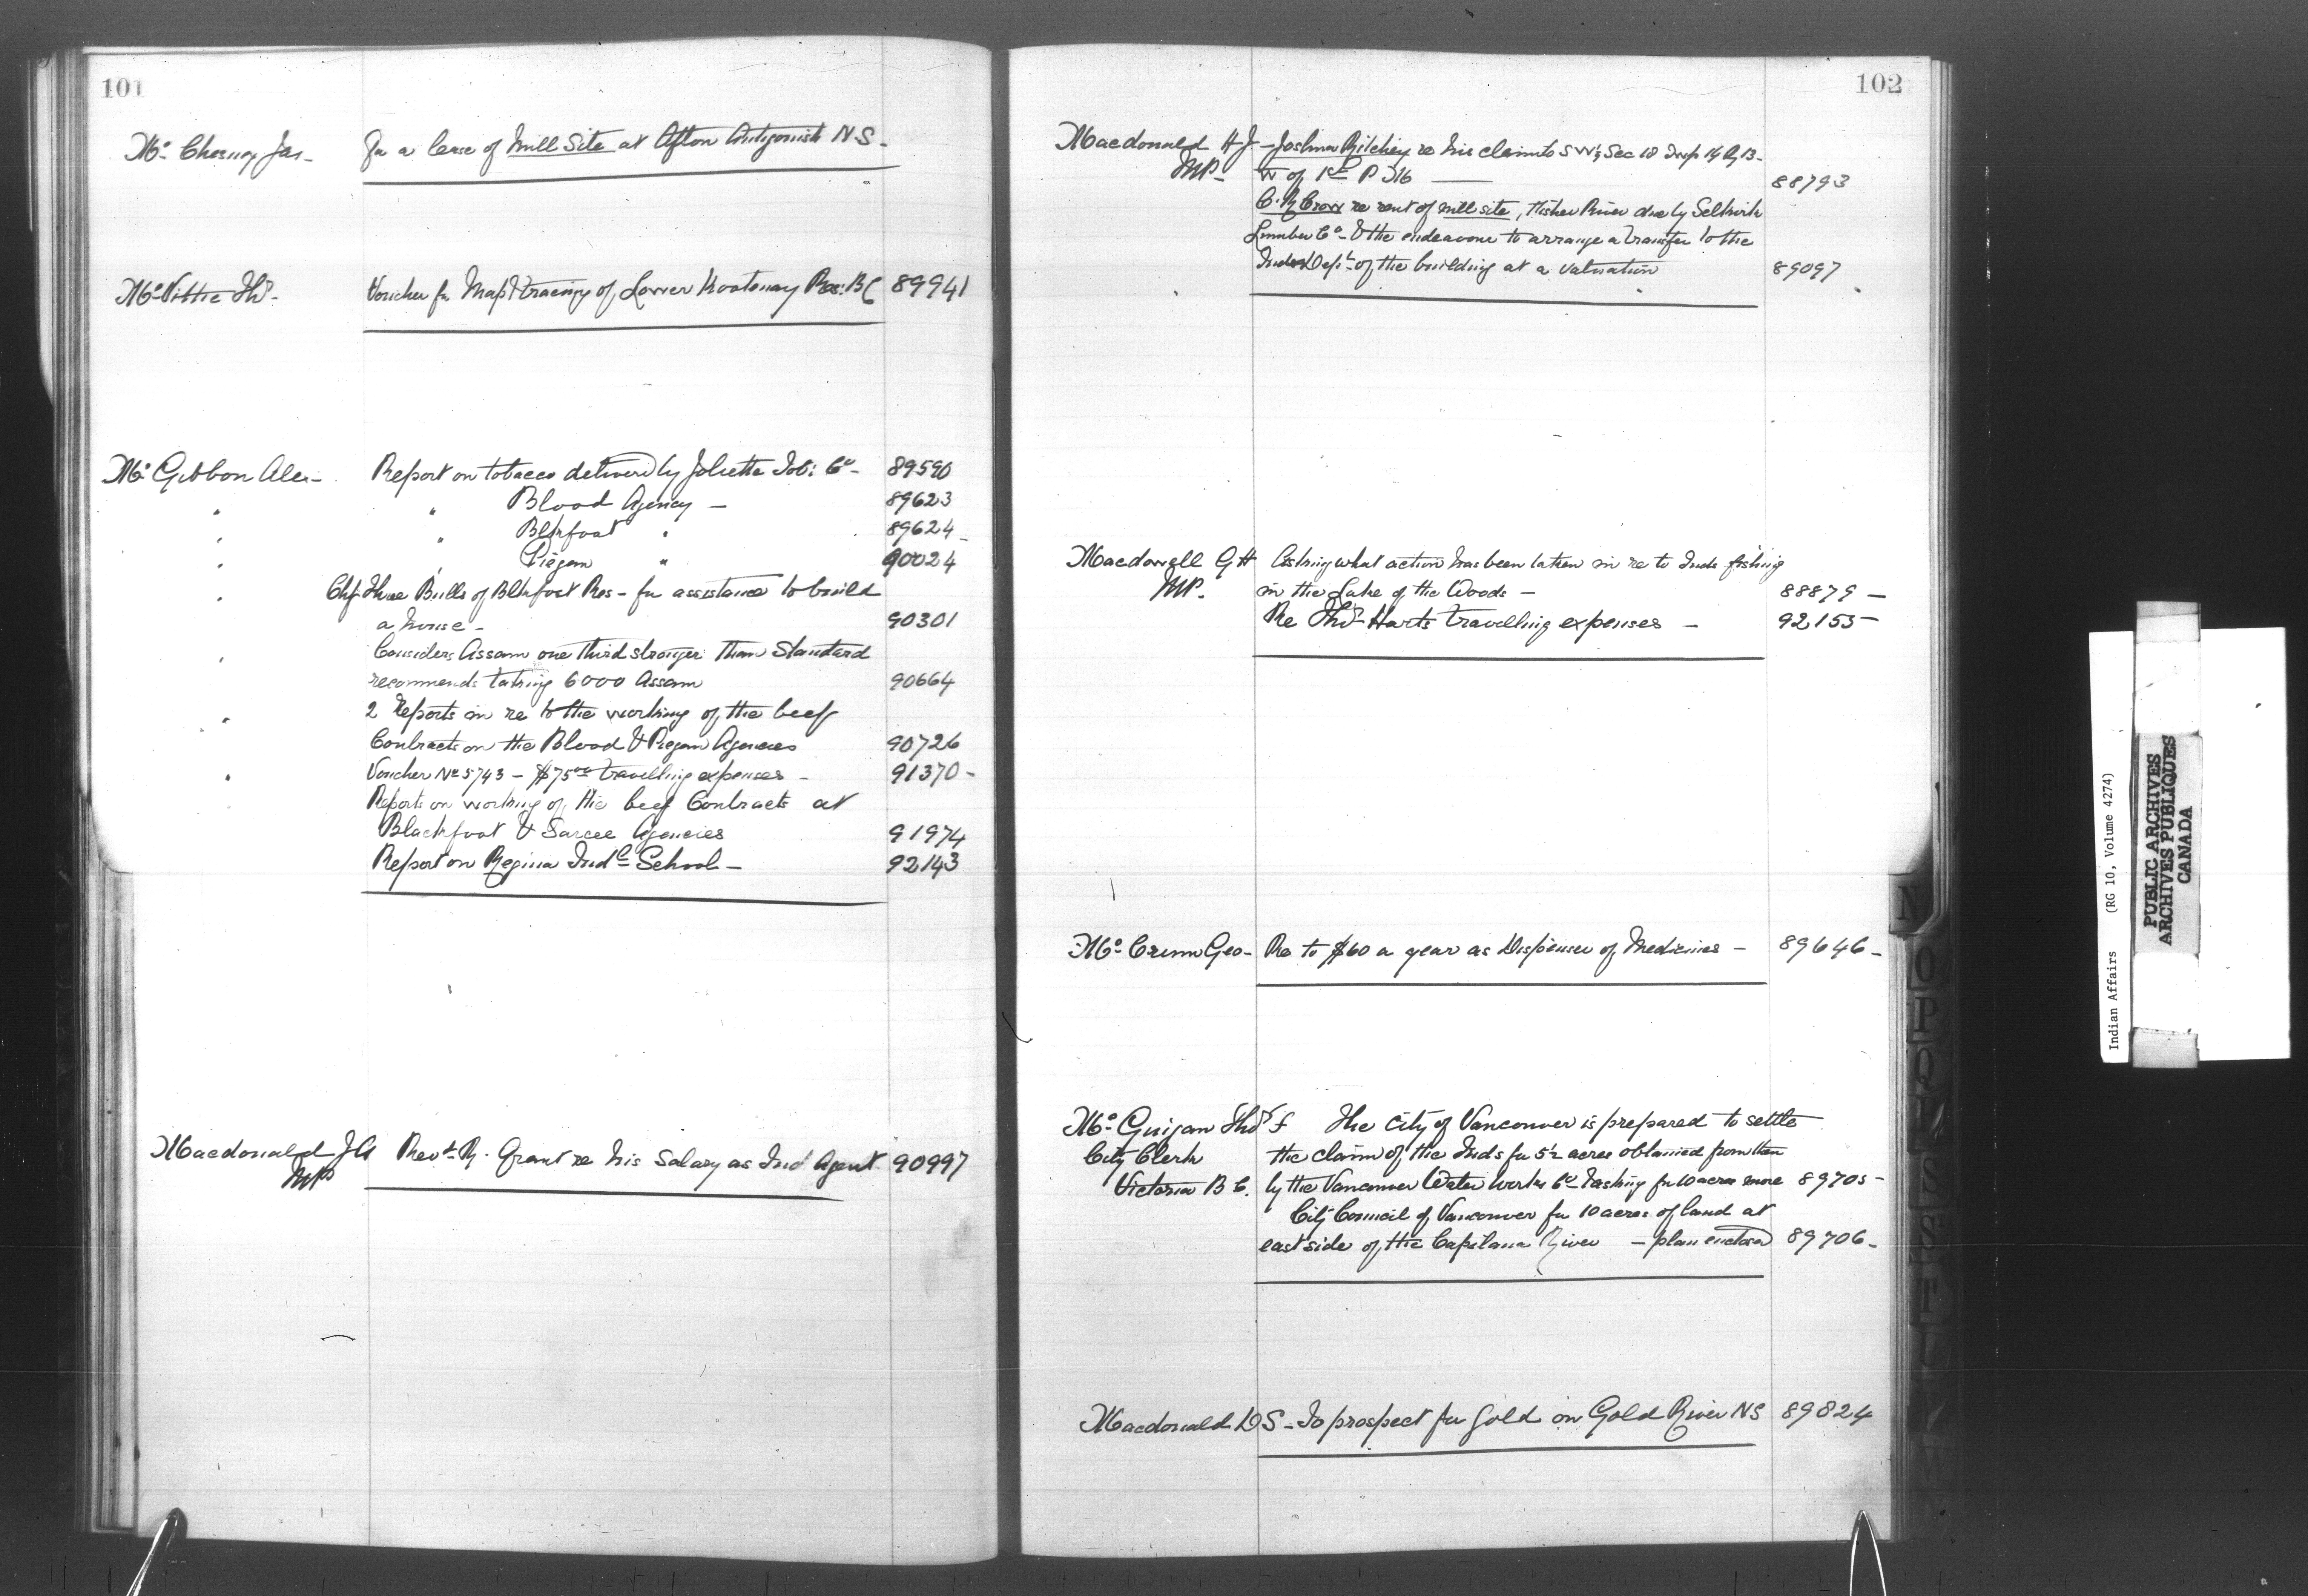 101
Mc Chesney Jas - For a lease of Mill Site at Afton Antigonish N S -
Mc Vittie Thos - Voucher for Map & tracing of Lower Kootenay Res: B C 89941
Mc Gibbon Alex - Report on tobacco delivered by Joliette Tob: Co - 89590
" " Blood Agency - 89623
" " Blkfoot " 89624 -
" " Piegan " 90024
" Chf Three Bulls of Blkfoot Res - for assistance to build
a house - 90301
" Considers Assam one third stronger than Standard
recommends taking 6000 Assam 90664
" 2 Reports in re to the working of the beef
Contracts on the Blood & Piegan Agencies 90726
" Voucher No 5743 - $75 00 travelling expenses - 91370 -
" Reports on working of the beef Contracts at
Blackfoot & Sarcee Agencies 91974
Report on Regina Indl School - 92143
Macdonald J A Revd R. Grant re his Salary as Ind Agent 90997
MP
102
Macdonald H J - Joshua Ritchey re his claim to S W 1/4 Sec 18 Twp 14 R 13 -
MP - W of 1st P 316 — 88793
C. R. Cross re rent of mill site, Fisher River due by Selkirk
Lumber Co - & the endeavour to arrange a transfer to the
Indn Dept of the building at a valuation 89097
Macdowell G H Asking what action has been taken in re to Inds fishing
MP. in the Lake of the Woods - 88879 -
Re Thos Harts travelling expenses - 92155 -
Mc Crum Geo - Re to $60 a year as Dispenser of Medicines - 89646 -
Mc Guigan Thos F The City of Vancouver is prepared to settle
City Clerk the claim of the Inds for 5 1/2 acres obtained from them
Victoria B C. by the Vancouver Water Works Co & asking for 10 acres more 89705 -
City Council of Vancouver for 10 acres of land at
east side of the Capilano River - plan enclosed 89706 -
Macdonald D S - To prospect for gold on Gold River N S 89824
N
O
P
Q
R
S
T
U
Indian Affairs (RG 10, Volume 4274)
PUBLIC ARCHIVES
ARCHIVES PUBLIQUES
CANADA